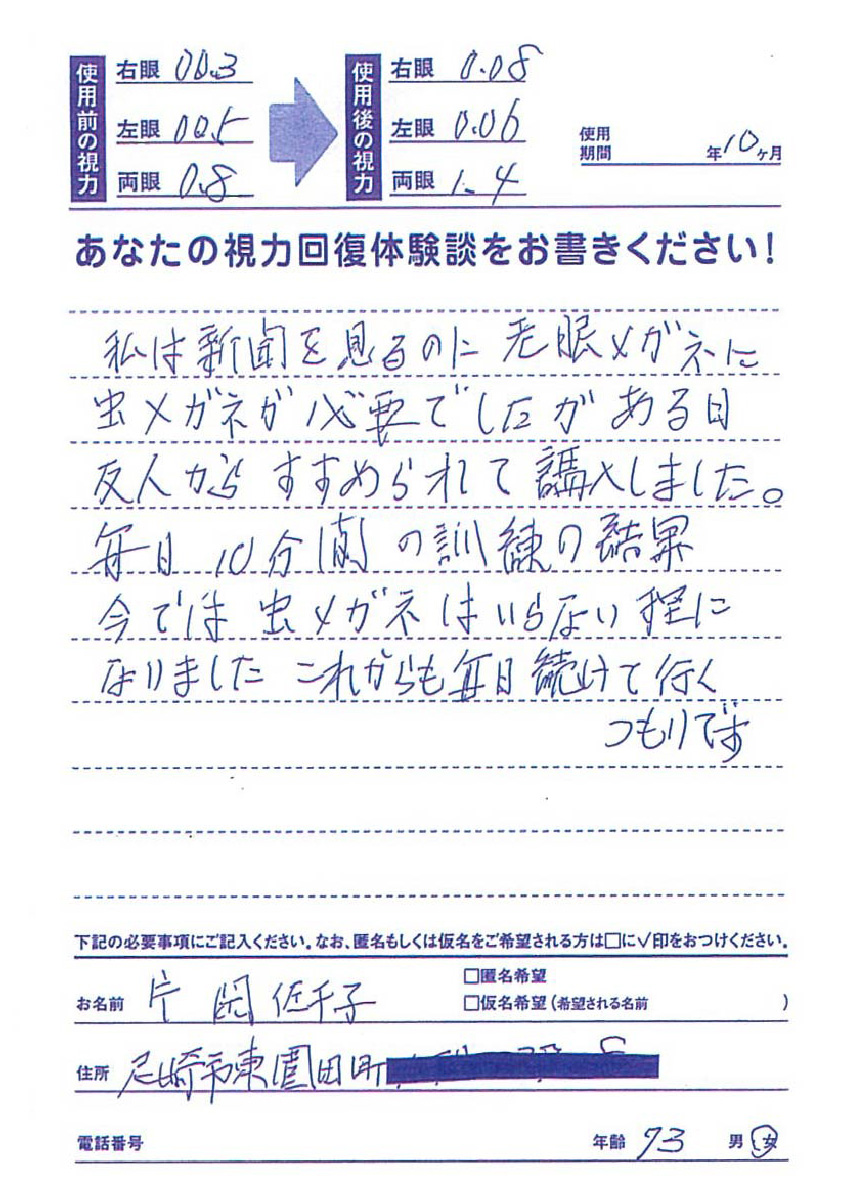 使用前の視力
右眼 00.3
左眼 00.5
両眼 0.8
使用後の視力
右眼 0.08
左眼 0.06
両眼 1.4
使用期間 年10ヶ月
あなたの視力回復体験談をお書きください!
私は新聞を見るのに老眼メガネに
虫メガネが必要でしたがある日
友人からすすめられて購入しました。
毎日10分間の訓練の結果
今では虫メガネはいらない程に
なりました これからも毎日続けて行く
つもりです
下記の必要事項にご記入ください。なお、匿名もしくは仮名をご希望される方は□に✓印をおつけください。
お名前 片岡佐千子
□匿名希望
□仮名希望(希望される名前 )
住所 尼崎市東園田町
電話番号 年齢 73 男 女